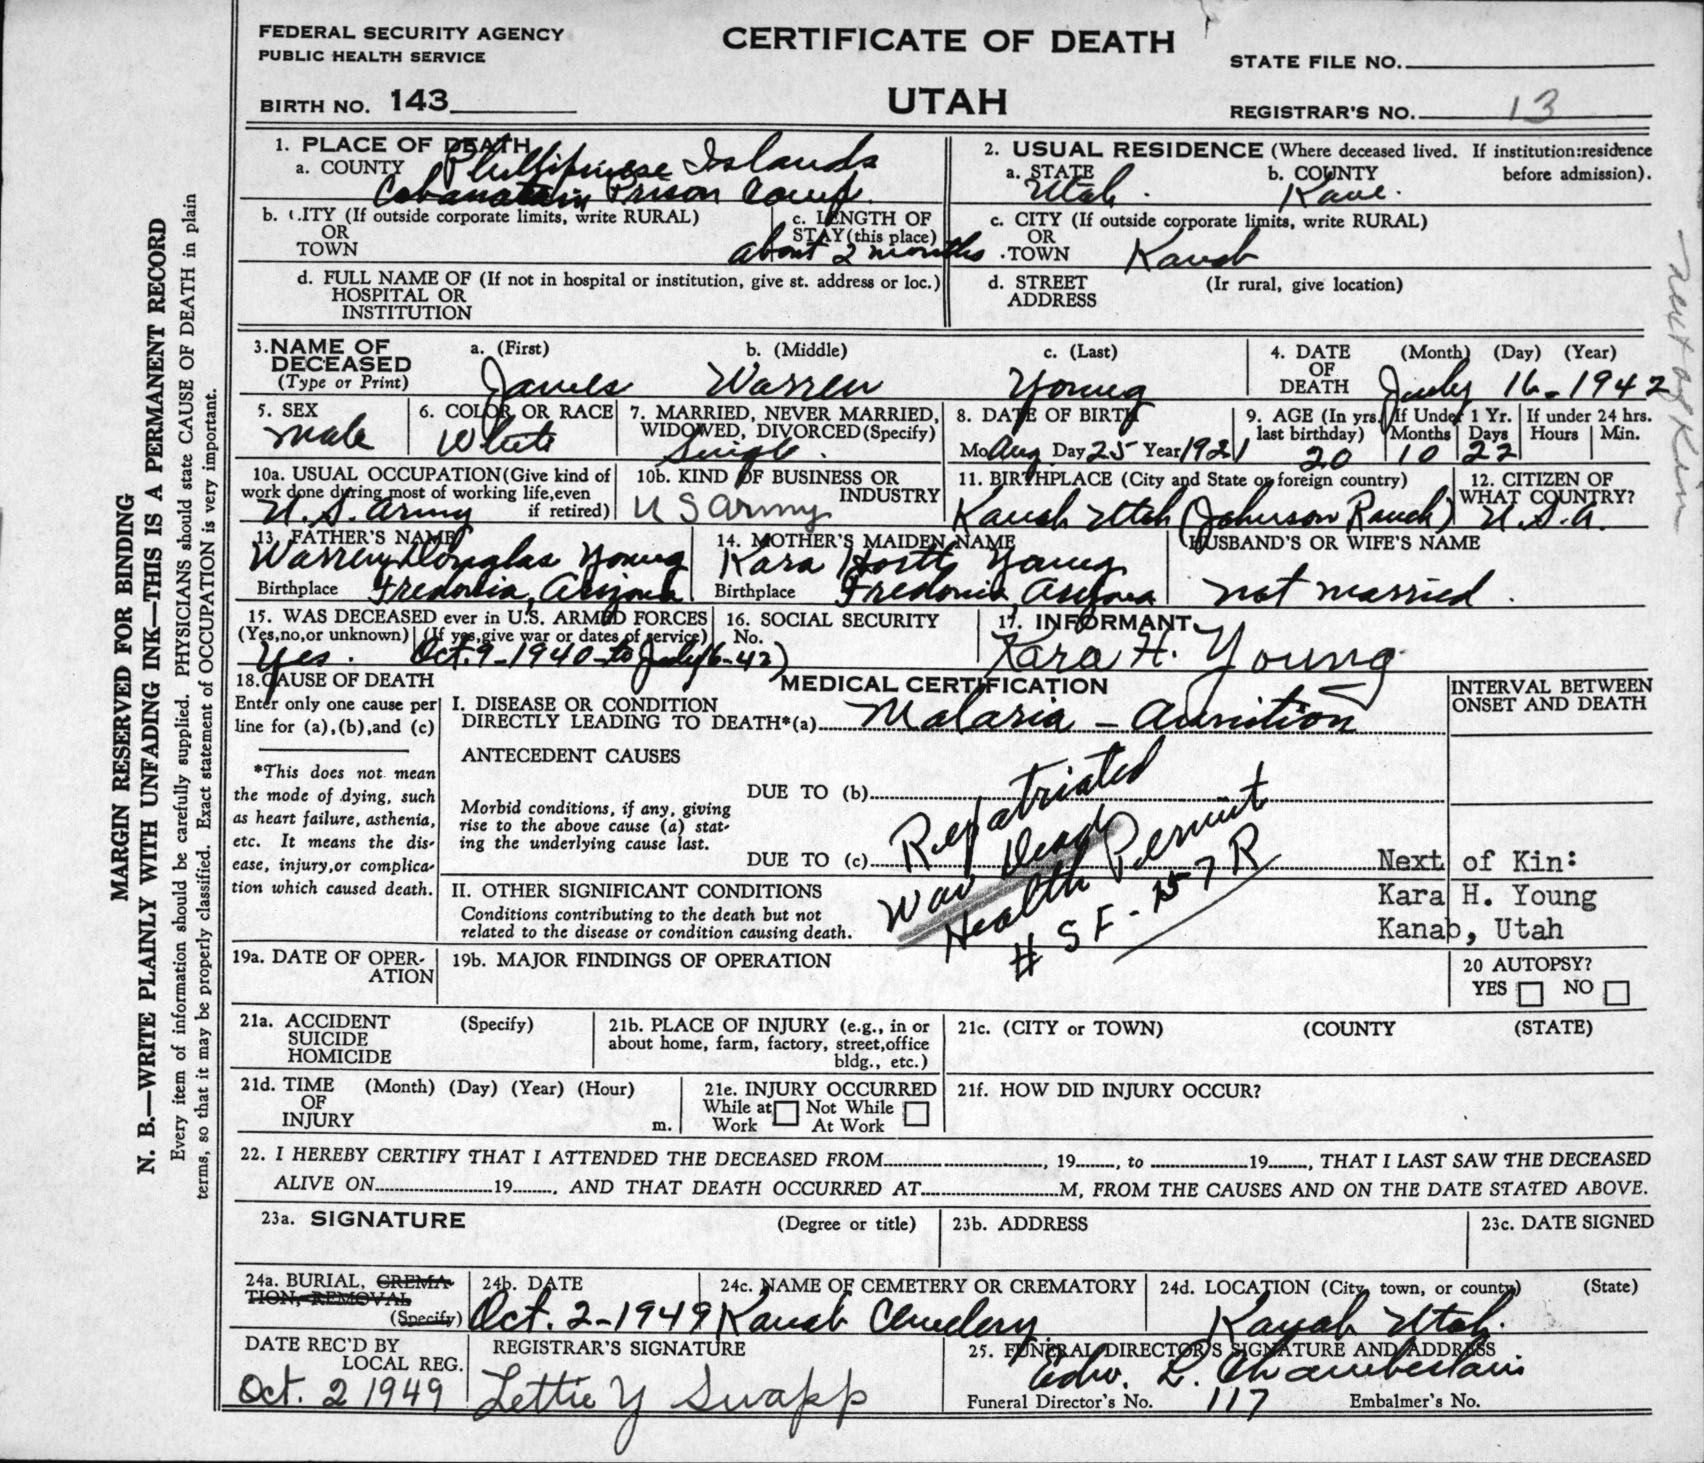 FEDERAL SECURITY AGENCY
PUBLIC HEALTH SERVICE
CERTIFICATE OF DEATH
UTAH
STATE FILE NO.
BIRTH NO. 143
REGISTRAR'S NO. 13
MARGIN RESERVED FOR BINDING
N. B.—WRITE PLAINLY WITH UNFADING INK—THIS IS A PERMANENT RECORD
Every item of information should be carefully supplied. PHYSICIANS should state CAUSE OF DEATH in plain
terms, so that it may be properly classified. Exact statement of OCCUPATION is very important.
1. PLACE OF DEATH
a. COUNTY Phillipinese Islands
Cabanatain Prison Camp
b. CITY (If outside corporate limits, write RURAL)
OR
TOWN
c. LENGTH OF
STAY (this place)
about 2 months
d. FULL NAME OF (If not in hospital or institution, give st. address or loc.)
HOSPITAL OR
INSTITUTION
2. USUAL RESIDENCE (Where deceased lived. If institution:residence
before admission).
a. STATE Utah.
b. COUNTY Kane.
c. CITY (If outside corporate limits, write RURAL)
OR
TOWN Kanab
d. STREET (Ir rural, give location)
ADDRESS
next of Kin
3. NAME OF DECEASED
(Type or Print)
a. (First) James
b. (Middle) Warren
c. (Last) Young
4. DATE OF DEATH (Month) (Day) (Year)
July 16-1942
5. SEX
male
6. COLOR OR RACE
White
7. MARRIED, NEVER MARRIED,
WIDOWED, DIVORCED (Specify)
Single.
8. DATE OF BIRTH
Mo Aug. Day 25 Year 1921
9. AGE (In yrs. last birthday)
20
If Under 1 Yr.
Months Days
10 22
If under 24 hrs.
Hours Min.
10a. USUAL OCCUPATION (Give kind of
work done during most of working life, even
if retired)
U.S. Army
10b. KIND OF BUSINESS OR
INDUSTRY
U S Army
11. BIRTHPLACE (City and State or foreign country)
Kanab Utah (Johnson Ranch)
12. CITIZEN OF
WHAT COUNTRY?
U.S.A.
13. FATHER'S NAME
Warren Douglas Young
Birthplace Fredonia, Arizona
14. MOTHER'S MAIDEN NAME
Kara Hortt Young
Birthplace Fredonia, Arizona
HUSBAND'S OR WIFE'S NAME
not married.
15. WAS DECEASED ever in U.S. ARMED FORCES
(Yes,no,or unknown) (If yes,give war or dates of service)
Yes. Oct. 9-1940 to July 16-42)
16. SOCIAL SECURITY
No.
17. INFORMANT
Kara H. Young
18. CAUSE OF DEATH
Enter only one cause per
line for (a),(b),and (c)
*This does not mean
the mode of dying, such
as heart failure, asthenia,
etc. It means the dis-
ease, injury,or complica-
tion which caused death.
MEDICAL CERTIFICATION
I. DISEASE OR CONDITION
DIRECTLY LEADING TO DEATH*(a) Malaria -
ANTECEDENT CAUSES
Morbid conditions, if any, giving
rise to the above cause (a) stat-
ing the underlying cause last.
DUE TO (b)
DUE TO (c)
II. OTHER SIGNIFICANT CONDITIONS
Conditions contributing to the death but not
related to the disease or condition causing death.
Repatriated
War Dead
Health Permit
# SF-157R
INTERVAL BETWEEN
ONSET AND DEATH
Next of Kin:
Kara H. Young
Kanab, Utah
19a. DATE OF OPER-
ATION
19b. MAJOR FINDINGS OF OPERATION
20 AUTOPSY?
YES NO
21a. ACCIDENT (Specify)
SUICIDE
HOMICIDE
21b. PLACE OF INJURY (e.g., in or
about home, farm, factory, street,office
bldg., etc.)
21c. (CITY or TOWN) (COUNTY (STATE)
21d. TIME (Month) (Day) (Year) (Hour)
OF
INJURY m.
21e. INJURY OCCURRED
While at Work Not While At Work
21f. HOW DID INJURY OCCUR?
22. I HEREBY CERTIFY THAT I ATTENDED THE DECEASED FROM , 19 , to 19 , THAT I LAST SAW THE DECEASED
ALIVE ON 19 , AND THAT DEATH OCCURRED AT M, FROM THE CAUSES AND ON THE DATE STATED ABOVE.
23a. SIGNATURE (Degree or title)
23b. ADDRESS
23c. DATE SIGNED
24a. BURIAL, CREMA-
TION, REMOVAL
(Specify)
24b. DATE
Oct. 2-1949
24c. NAME OF CEMETERY OR CREMATORY
Kanab Cemetery.
24d. LOCATION (City, town, or county) (State)
Kanab Utah.
DATE REC'D BY
LOCAL REG.
Oct. 2 1949
REGISTRAR'S SIGNATURE
Lettie Y Swapp
25. FUNERAL DIRECTOR'S SIGNATURE AND ADDRESS
Edw. L. Chamberlain
Funeral Director's No. 117 Embalmer's No.